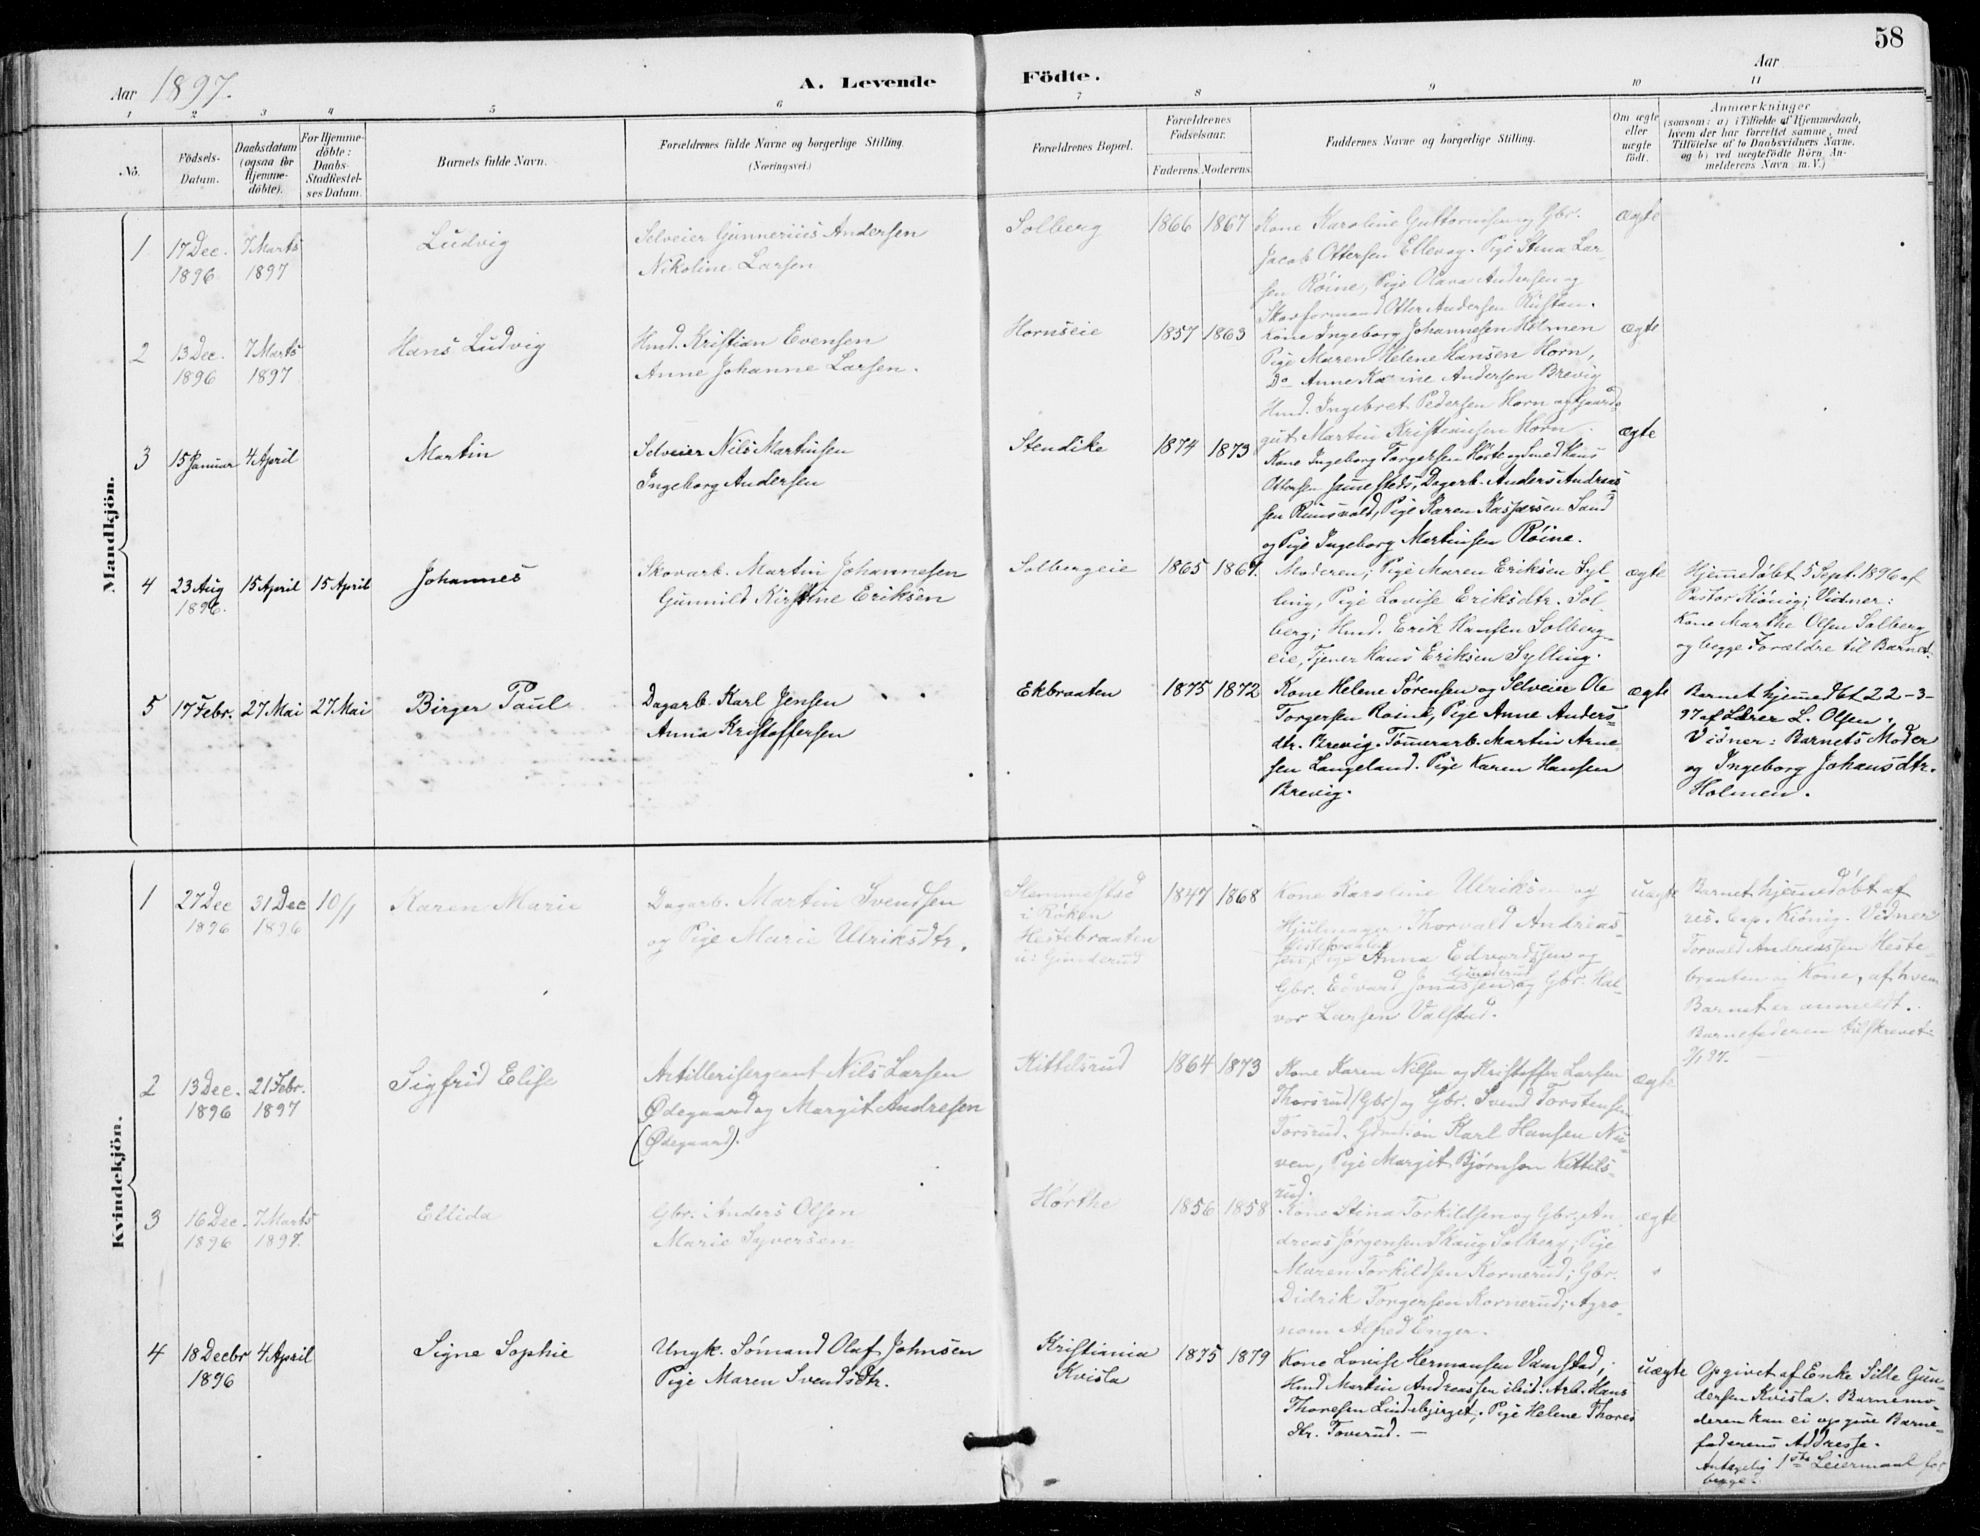 58
Aar 1897.
A. Levende Födte.
Aar
1 2 3 4 5 6 7 8 9 10 11
No.
Födsels-Datum.
Daabsdatum (ogsaa for Hjemme-döbte).
For Hjemme-döbte: Daabs-Stadfæstel-ses Datum.
Barnets fulde Navn.
Forældrenes fulde Navne og borgerlige Stilling.
(Næringsvei.)
Forældrenes Bopæl.
Forældrenes Födselsaar.
Faderens. Moderens.
Faddernes Navne og borgerlige Stilling.
Om ægte eller uægte födt.
Anmærkninger
(saasom: a) i Tilfælde af Hjemmedaab,
hvem der har forrettet samme, med
Tilföielse af to Daabsvidners Navne,
og b) ved uægtefödte Börn An-
melderens Navn m. V.)
Mandkjön.
1 17 Dec. 1896 7 Marts 1897
Ludvig
Selveier Gunnerius Andersen
Nikoline Larsen
Solberg
1866 1867
Kone Karoline Guttormsen og Gbr.
Jacob Ottersen Ellevog. Pige Stina Lar-
sen Röine, Pige Olava Andersen og
Skovformand Otter Andersen
ægte
2 13 Dec. 1896 7 Marts 1897
Hans Ludvig
Hmd. Kristian Evensen
Anne Johanne Larsen.
Hornseie
1857 1863
Kone Ingeborg Johannesen Holmen
Pige Maren Helene Hansen Horn,
Do Anne Karine Andersen Brevig
Hmd. Ingebret Pedersen Horn og Gaards-
gut Martin Kristiansen Horn.
ægte
3 15 Januar 4 April
Martin
Selveier Nils Martinsen
Ingeborg Andersen
Stendike
1874 1873
Kone Ingeborg Torgersen Hörte og Smed Hans
Ottersen sammesteds, Dagarb. Anders Andreas-
sen Pige Karen Kaspersen Sand
og Pige Ingeborg Martinsen Röine.
ægte
4 23 Aug 1896. 15 April 15 April
Johannes
Skovarb. Martin Johannesen
Gunnild Kirstine Eriksen
Solbergeie
1865 1867.
Moderen, Pige Maren Eriksen Syl-
ling, Pige Lovise Eriksdtr. Sol-
berg; Hmd. Erik Hansen Solberg-
eie, Tjener Hans Eriksen Sylling.
ægte
Hjemmedöbt 5 Sept. 1896 af
Pastor Kiönig; Vidner:
Kone Marthe Olsen Solberg
og begge Forældre til Barnet.
5 17 Febr. 27 Mai 27 Mai
Birger Paul
Dagarb. Karl Jensen
Anna Kristoffersen
Ekbraaten
1875 1872
Kone Helene Sørensen og Selveier Ole
Torgersen Roine, Pige Anne Anders-
dtr. Brevig. Tömmerarb. Martin Arne-
sen Langeland. Pige Karen Hansen
Brevig.
ægte
Barnet hjemmedöbt 22-3-
97 af Lærer L. Olsen.
Vidner: Barnets Moder
og Ingeborg Johansdtr.
Holmen.
Kvindekjön.
1 27 Dec 1896 31 Dec 1896 10/1
Karen Marie
Dagarb. Martin Svendsen
og Pige Marie Ulriksdtr.
Slemmestad
i Røken
Hestebraaten
u: Gunderud
1847 1868
Kone Karoline Ulriksen og
Hjulmager Thorvald Andreas-
Hestebraaten
sen, Pige Anna Edvardsen og
Gunderud
Gbr. Edvard Jonassen og Gbr. Hal-
vor Larsen Valstad.
uægte
Barnet hjemmedöbt af
res. Cap. Kiönig. Vidner
Torvald Andreassen Heste-
braaten og Kone, af hvem
Barnet er anmeldt.
Barnefaderen tilskrevet
97.
2 13 Dec. 1896 21 Febr. 1897
Sigfrid Elise
Artillerisergeant Nils Larsen
Ødegaard og Margit Andresen
(Ødegaard).
Kittilsrud
1864 1873
Kone Karen Nilsen og Kristoffer Larsen
Thorsrud (Gbr) og Gbr. Svend Torstensen
Torsrud. Karl Hansen Nu-
ven, Pige Margit Bjørnson Kittils-
rud.
ægte
3 16 Dec. 1896 7 Marts 1897.
Ellida
Gbr. Anders Olsen
Marie Syversen
Hørthe
1856 1858
Kone Stina Torkildsen og Gbr. An-
dreas Jørgensen Skaug Solberg; Pige
Maren Torkildsen Kornerud; Gbr.
Didrik Torgersen Kornerud; Agro-
nom Alfred Enger.
ægte
4 18 Decbr 1896 4 April
Signe Sophie
Ungk. Sømand Olaf Johnsen
Pige Maren Svendsdtr.
Kristiania
Kvisla
1875 1879
Kone Lovise Hermansen Vamstad;
Hmd Martin Andreassen ibid. Arb. Hans
Thoresen Lindebjerget, Pige Helene Thores
dtr. Toverud. —
uægte
Opgivet af Enke Sille Gun-
dersen Kvisla. Barnemo-
deren kan ei opgive Barne-
faderens Addresse.
Antagelig 1ste Leiermaal for
begge.